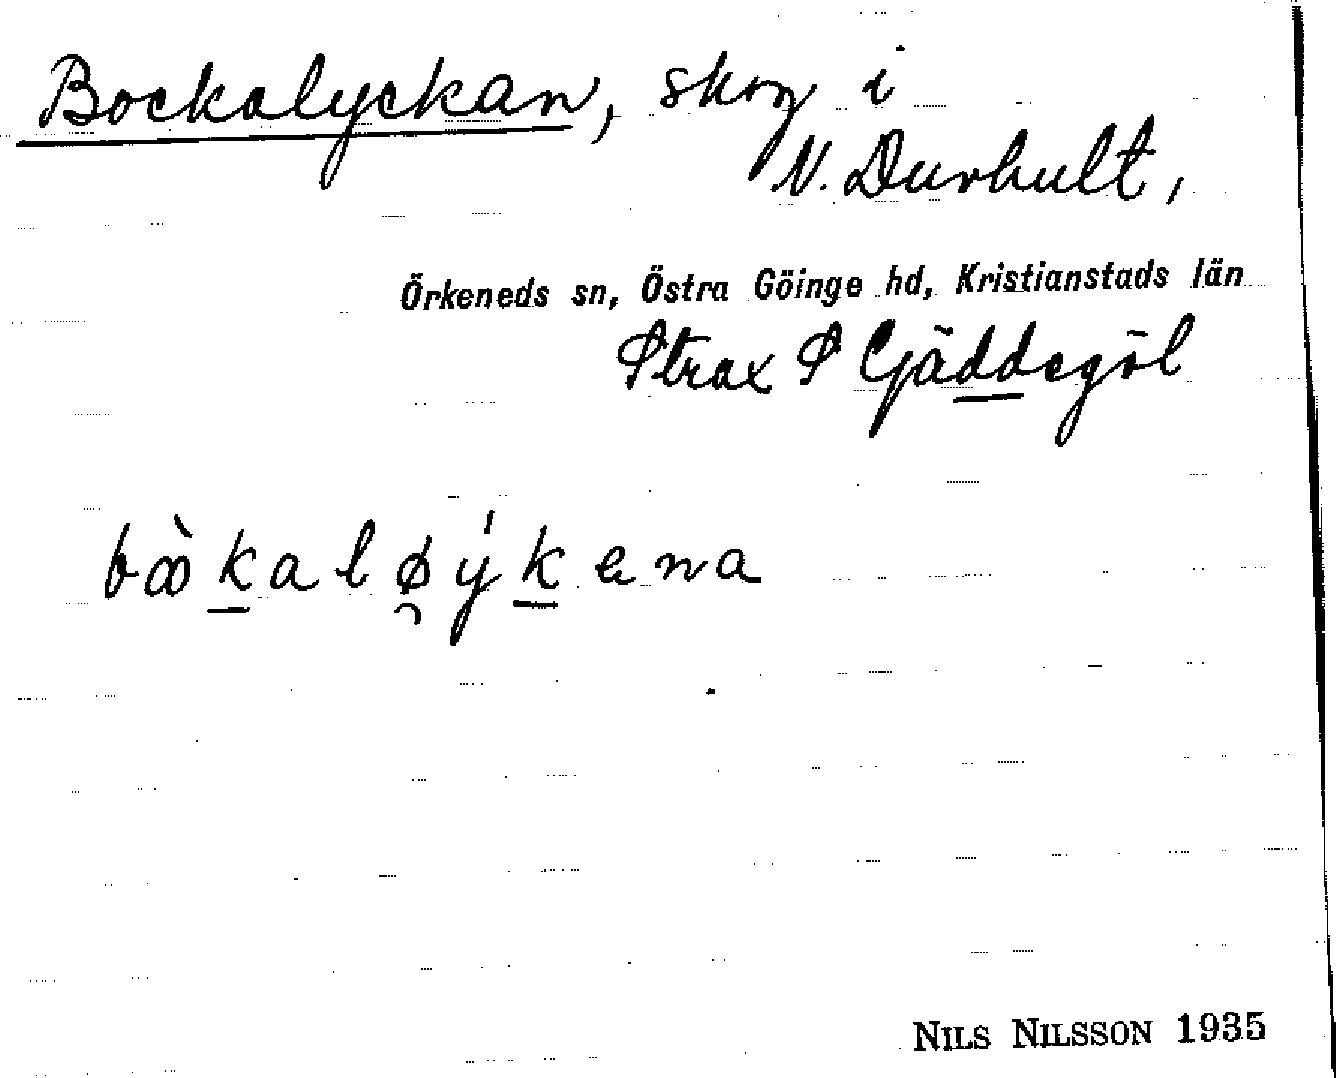 Bockalyckan, skog i
N. Durhult,
Örkeneds sn, Östra Göinge hd, Kristianstads län
Strax S Gäddegöl
bꝏ̀kalø̯ýkena
NILS NILSSON 1935